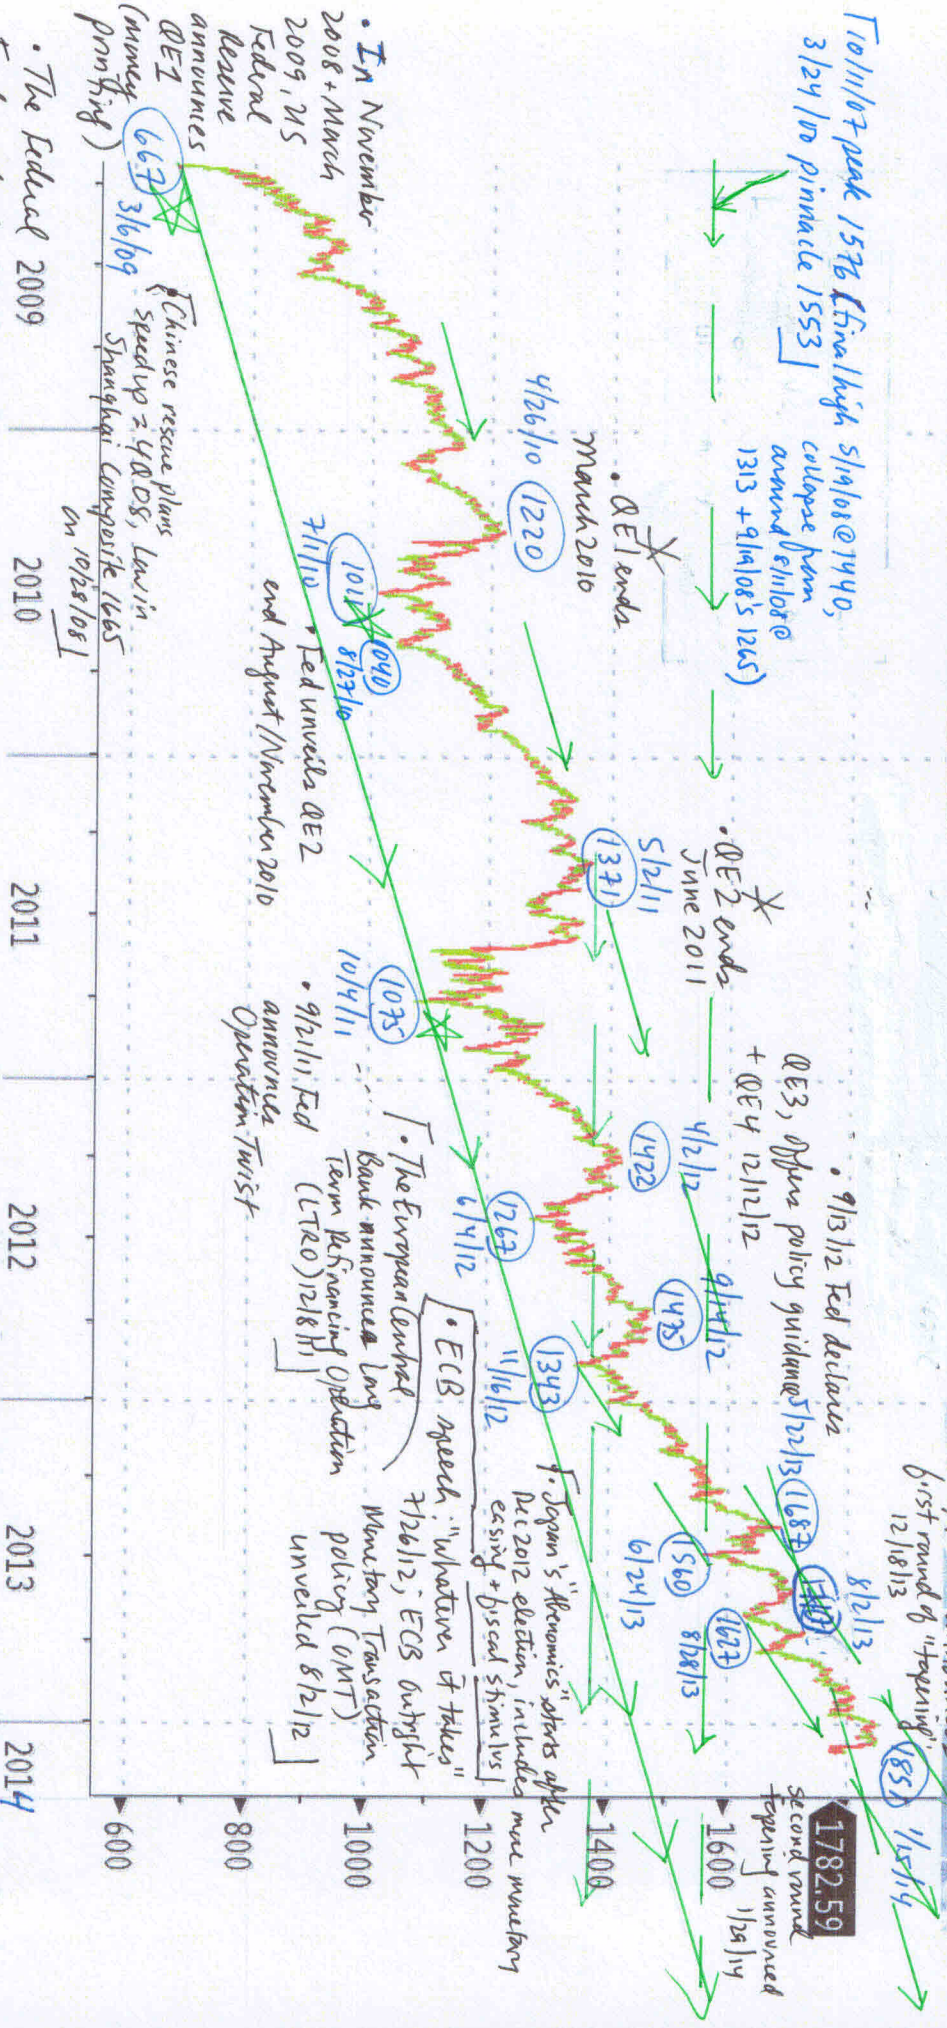 10/11/07 peak 1576 (final high 5/19/08 @ 1440,
3/24/00 pinnacle 1553]
collapse from
around 8/11/08 @
1313 + 9/19/08's 1265)
• In November
2008 + March
2009, US
Federal
Reserve
announces
QE1
(money
printing)
• The Federal
667
3/6/09
[Chinese rescue plans
speedup ≥ 4Q08, low in
Shanghai Composite 1665
on 10/28/08]
4/26/10
1220
• QE1 ends
March 2010
1011
7/1/10
1040
8/27/10
• Fed unveils QE2
end August/November 2010
• QE2 ends
June 2011
5/2/11
1371
1075
10/4/11
• 9/21/11 Fed
announces
Operation Twist
[• The European Central
Bank announces Long
Term Refinancing Operation
(LTRO) 12/8/11]
4/2/12
1422
1267
6/4/12
• 9/13/12 Fed declares
QE3, offers policy guidance
+ QE4 12/12/12
9/14/12
1475
1343
11/16/12
[• ECB speech: "whatever it takes"
7/26/12; ECB Outright
Monetary Transaction
policy (OMT)
unveiled 8/2/12]
[• Japan's "Abenomics" starts after
Dec 2012 election, includes more monetary
easing + fiscal stimulus]
5/22/13
1687
1560
6/24/13
8/2/13
1627
8/28/13
first round of "tapering"
12/18/13
1851
1/15/14
second round
tapering announced
1/29/14
1782.59
1600
1400
1200
1000
800
600
2009
2010
2011
2012
2013
2014